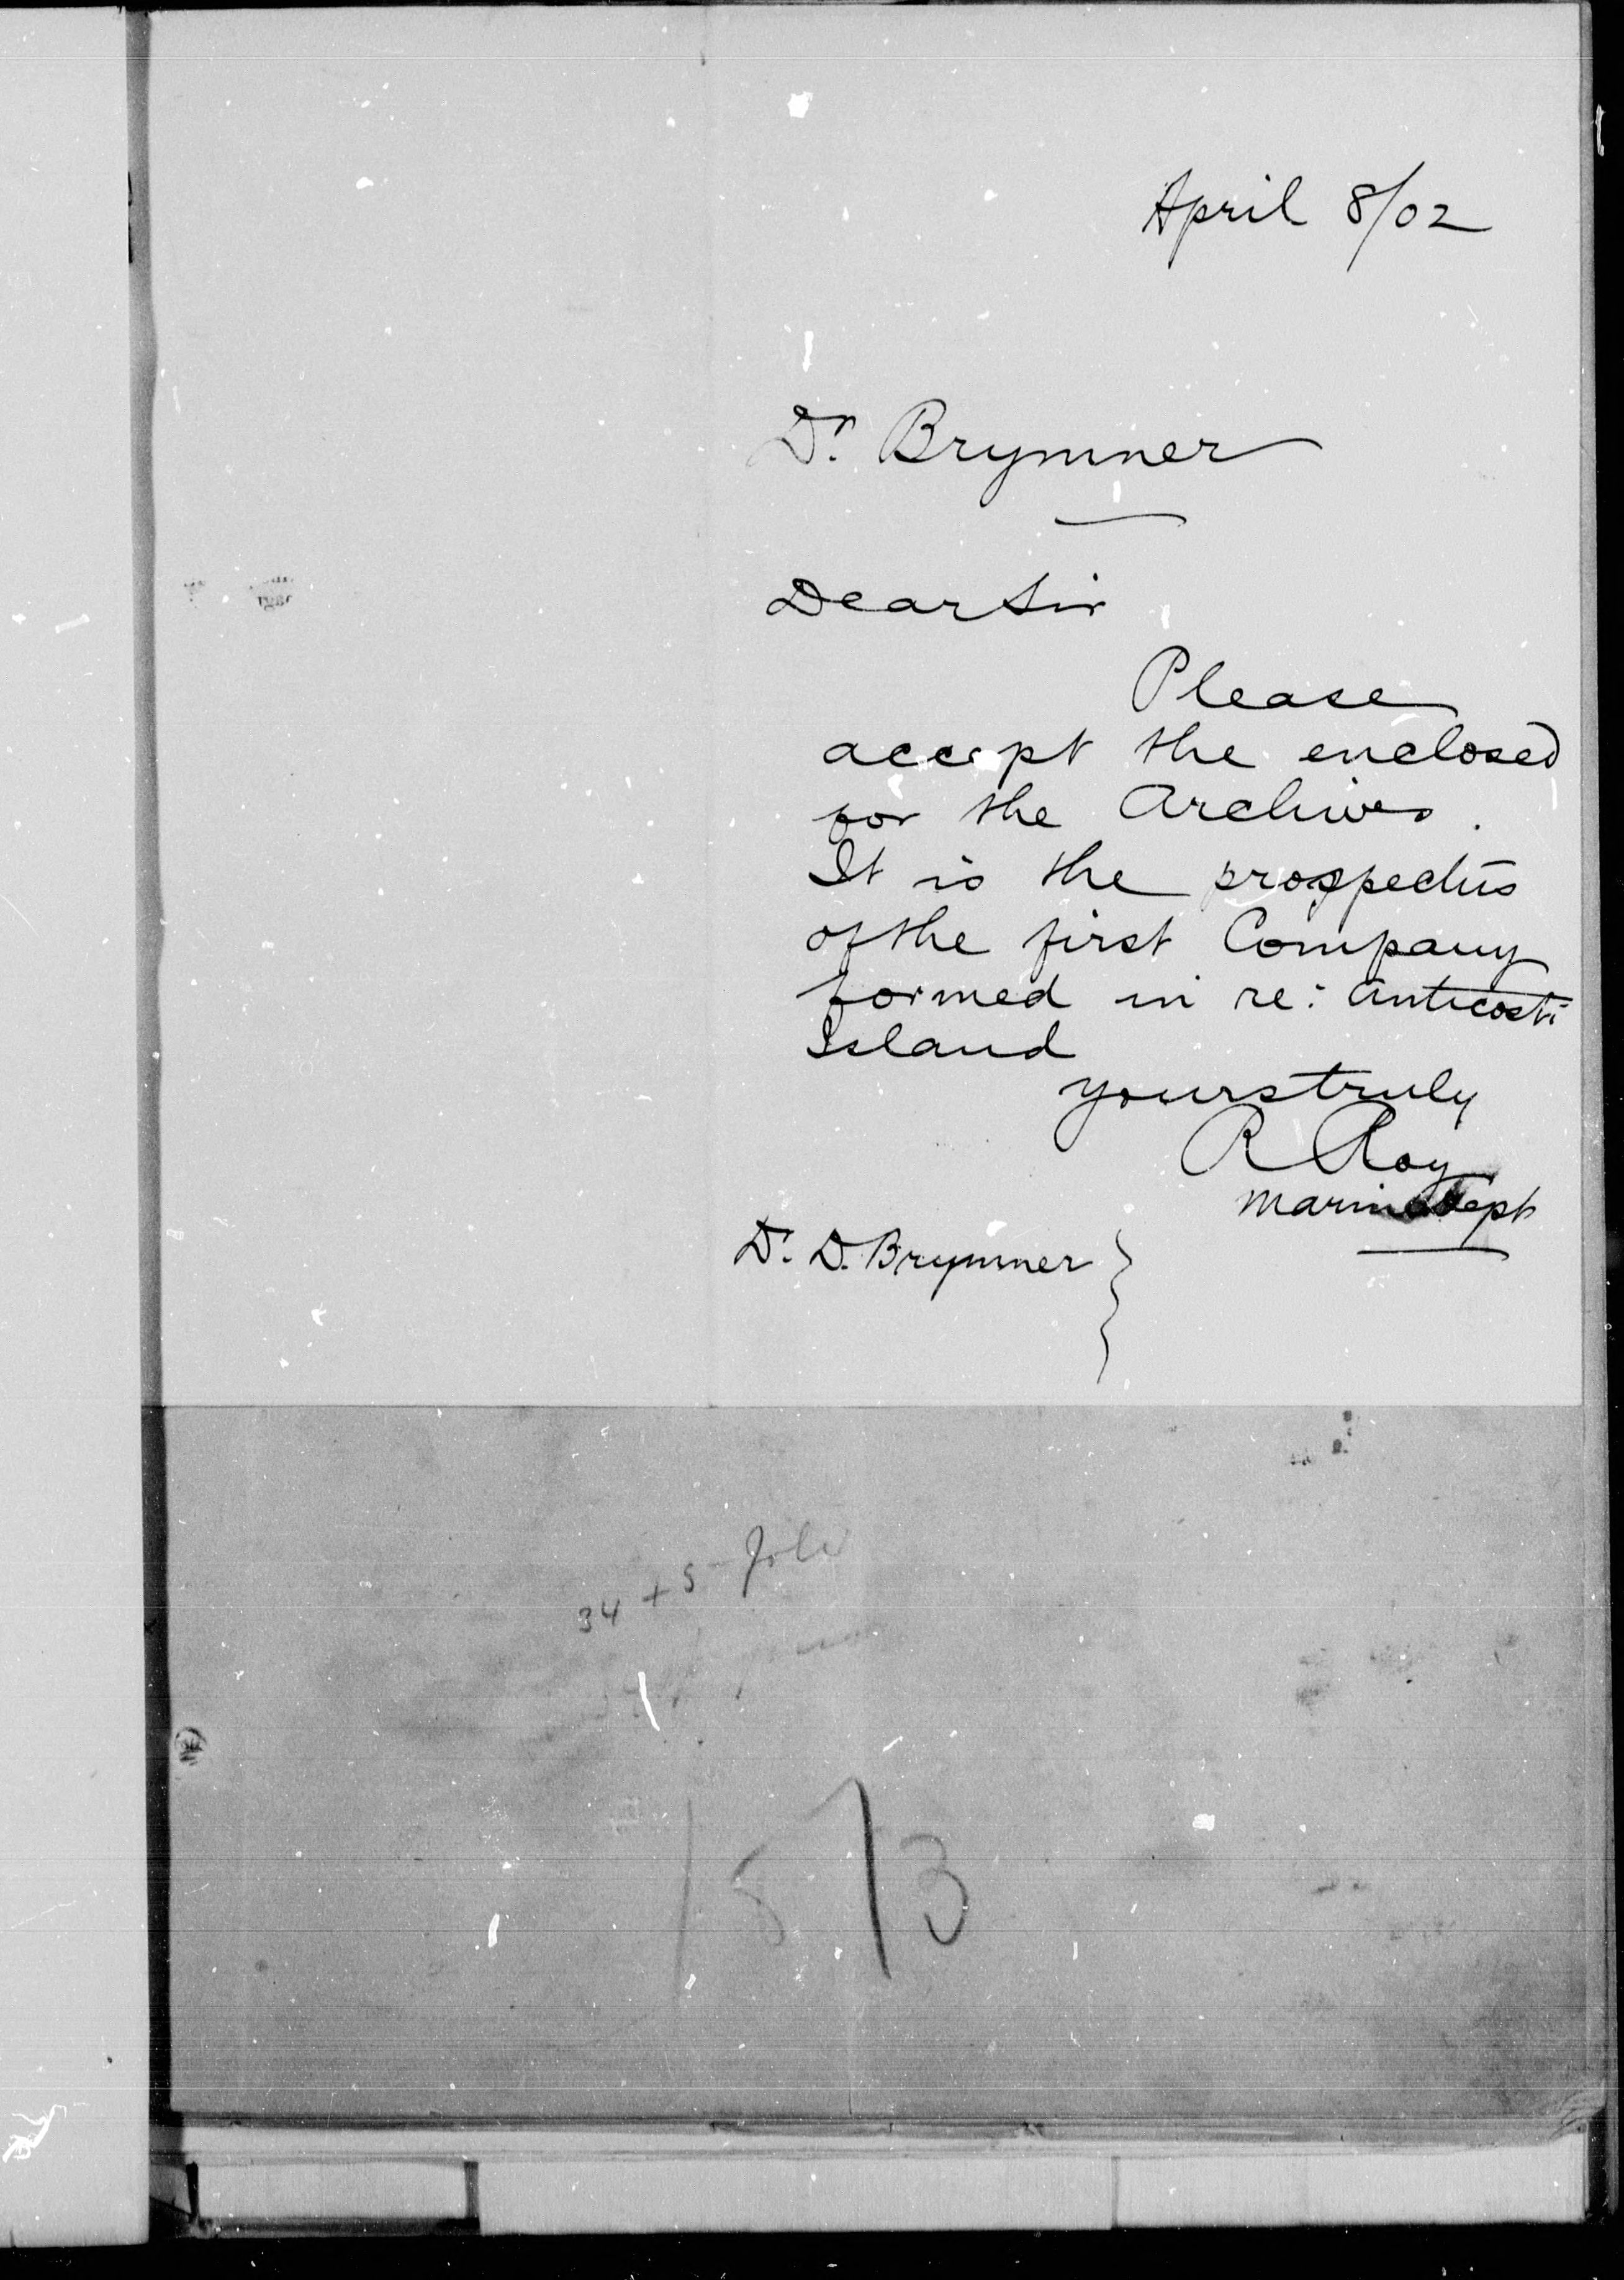 April 8/02
Dr. Brymner
Dear Sir
Please
accept the enclosed
for the Archives.
It is the prospectus
of the first Company
formed in re: Anticosti
Island
yours truly
R Roy
Marine Dept
Dr. D. Brymner
34 + 5
1873